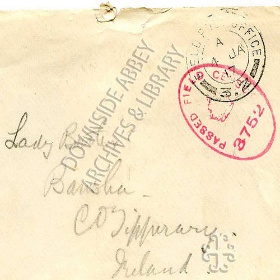 FIELD POST OFFICE
A
JA
4
17
3
PASSED FIELD CENSOR
3752
DOWNSIDE ABBEY
ARCHIVES & LIBRARY
Lady
Bansha
Co Tipperary
Ireland